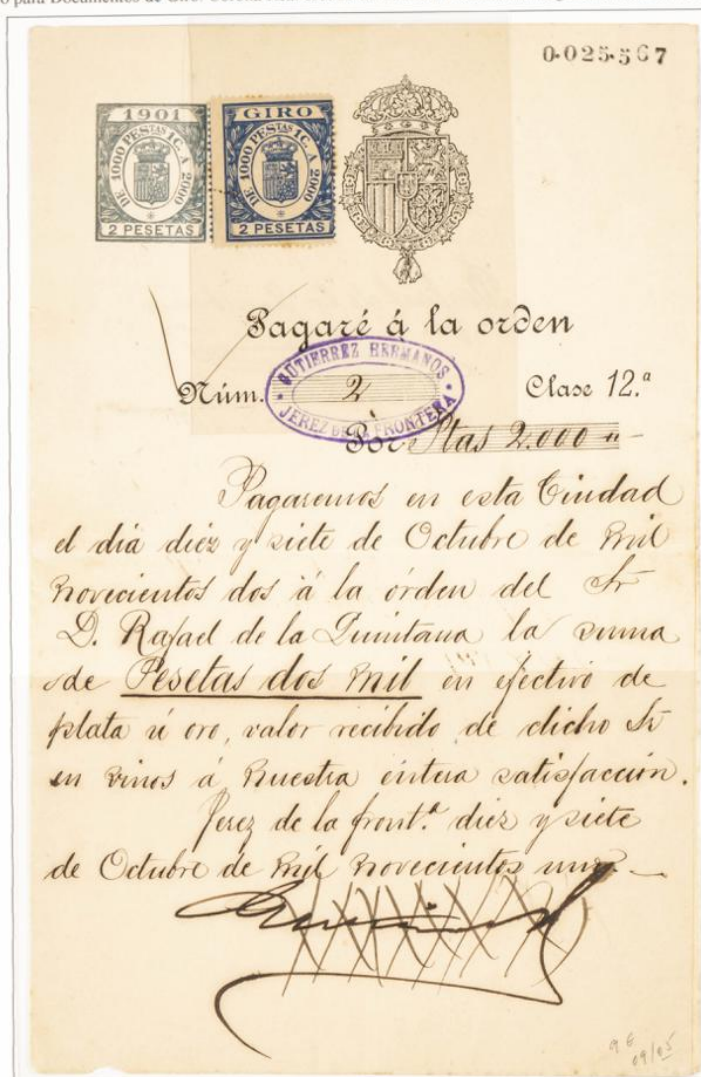 0·025·567
1901
DE 1000 PESTAS 1 C. A 2000
2 PESETAS
GIRO
DE 1000 PESTAS 1 C. A 2000
2 PESETAS
Pagaré á la orden
GUTIERREZ HERMANOS
JEREZ DE LA FRONTERA
Núm. 2 Clase 12.ª
Por Ptas 2.000 "-
Pagaremos en esta Ciudad
el dia diéz y siete de Octubre de mil
novecientos dos á la órden del Sr
D. Rafael de la Quintana la suma
de Pesetas dos mil en efectivo de
plata ú oro, valor recibido de dicho Sr
en vinos á nuestra entera satisfacción.
Jerez de la front.ª diez y siete
de Octubre de mil novecientos uno.
09/05